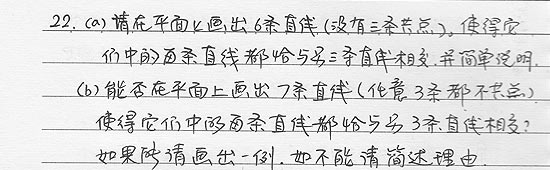 22. (a) 请在平面上画出6条直线(没有三条共点), 使得它
们中的每条直线都恰与另三条直线相交, 并简单说明.
(b) 能否在平面上画出7条直线(任意3条都不共点)
使得它们中的每条直线都恰与另3条直线相交?
如果能请画出一例, 如不能请简述理由.